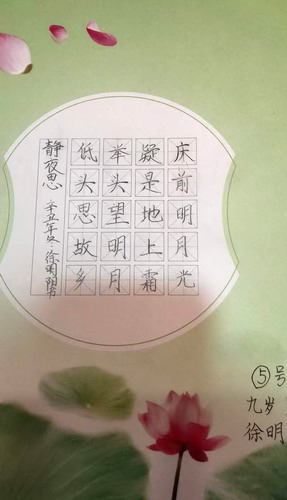 床前明月光
疑是地上霜
举头望明月
低头思故乡
静夜思 辛丑年 徐明阳书
⑤号
九岁
徐明